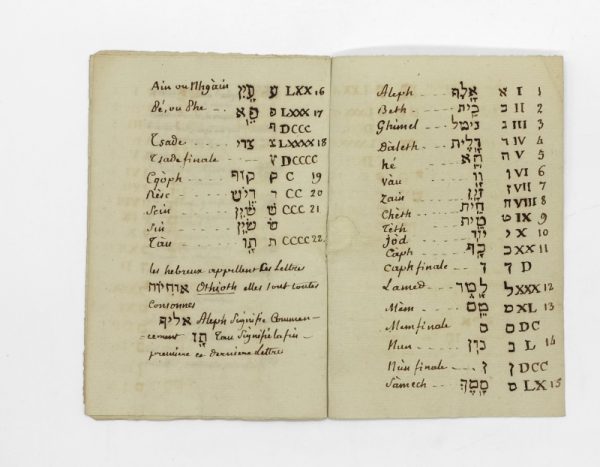 Aleph --- אָלֶף א I 1
Beth ---- בֵּית ב II 2
Ghimel --- גימל ג III 3
Daleth --- דָלֶת ד IV 4
hé ---- הֵא ה V 5
Vàu ---- וָו ו VI 6
Zain ---- זַיִן ז VII 7
Chèth --- חֵית ח VIII 8
Tèth ---- טֵית ט IX 9
Jòd ---- יוֹד י X 10
Càph ---- כָּף כ XX 11
Caph finale --- ך ך D
Lamed --- לָמֶד ל XXX 12
Mèm ---- מֵם מ XL 13
Mem finale ם ם DC
Nun --- נוּן נ L 14
Nùn finale --- ן ן DCC
Sàmech --- סָמֶךְ ס LX 15
Ain ou Nhgàin עַיִן ע LXX 16
Pé, ou Phe --- פֵּא פ LXXX 17
ף DCCC
Tsade ---- צדי צ LXXXX 18
Tsade finale ץ DCCCC
Cqòph --- קוף ק C 19
Rèsc --- רֵישׁ ר CC 20
Scin --- שִׁין שׁ CCC 21
Sin --- שִׂין שׂ
Tàu --- תָו ת CCCC 22
les hebreux appellent Ces Lettres
אותיות Othioth elles sont toutes
Consonnes
אליף Aleph Signifie Commen-
cement תָו Tau Signifie la fin
premiere et derniere Lettres